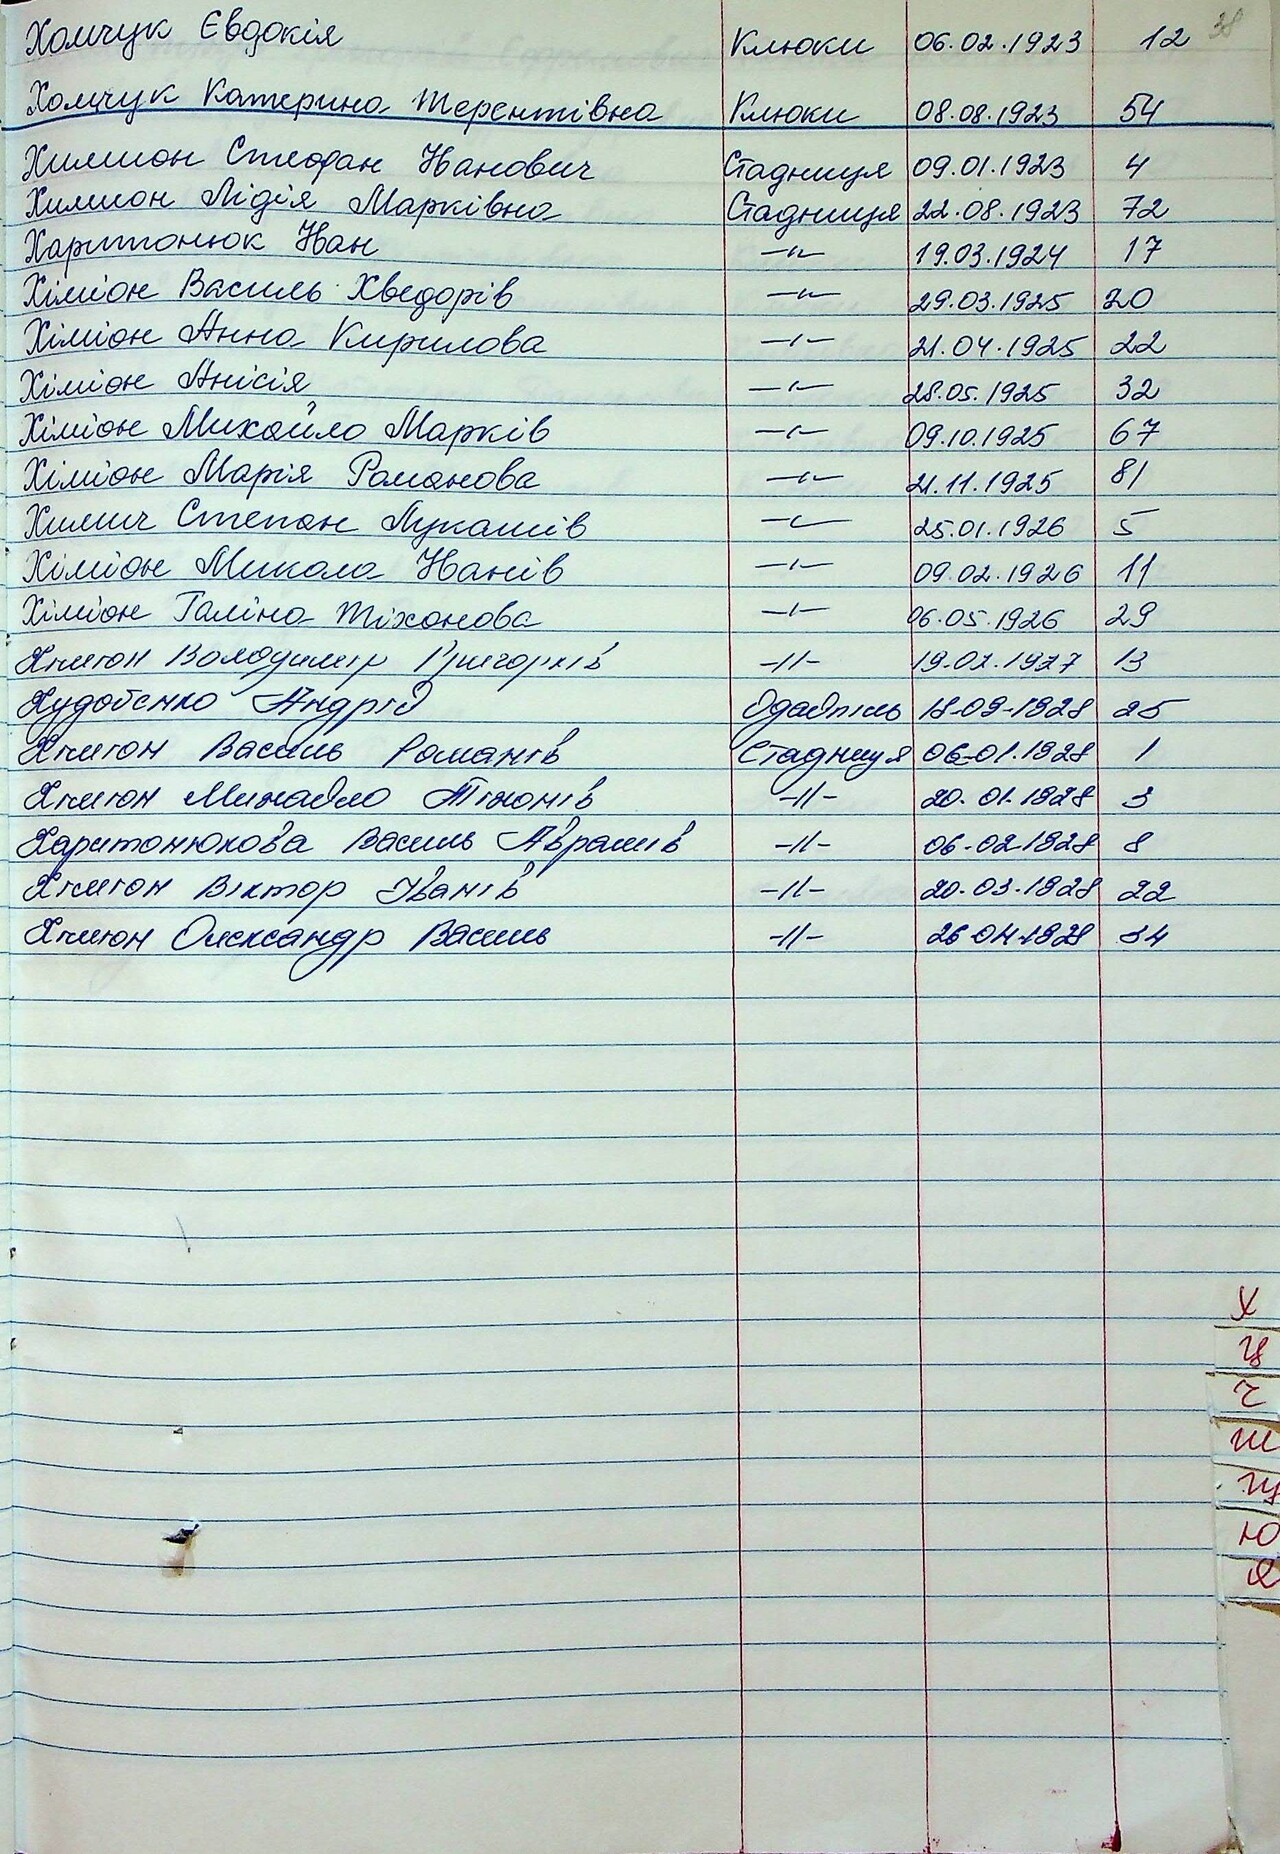 38
Хомчук Євдокія Клюки 06.02.1923 12
Хомчук Катерина Терентівна Клюки 08.08.1923 54
Химион Стефан Іванович Стадниця 09.01.1923 4
Химион Лідія Марківна Стадниця 22.08.1923 72
Харитонюк Іван —"— 19.03.1924 17
Хіміон Василь Хведорів —"— 29.03.1925 20
Хіміон Анна Кирилова —"— 21.04.1925 22
Хіміон Анісія —"— 28.05.1925 32
Хіміон Михайло Марків —"— 09.10.1925 67
Хіміон Марія Романова —"— 21.11.1925 81
Химич Степан Лукашів —"— 25.01.1926 5
Хіміон Микола Іванів —"— 09.02.1926 11
Хіміон Галіна Тіхонова —"— 06.05.1926 29
Хіміон Володимир Григорків -//- 19.02.1927 13
Худобенко Андрій 18.09.1928 25
Хіміон Василь Романів Стадниця 06.01.1928 1
Хіміон Михайло Тіхонів -//- 20.01.1928 3
Харитонюкова Василь Аврамів -//- 06.02.1928 8
Хіміон Віктор Іванів -//- 20.03.1928 22
Хіміон Олександр Василь -//- 26.04.1928 34
Х
Ц
Ч
Ш
Щ
Ю
Я